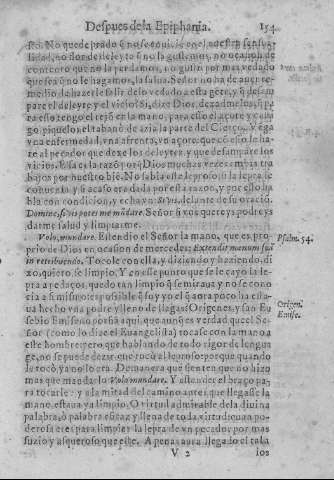 Despues de la Epiphania. 154
lidad, no flor de deleyte q̃ no la gustemos, no ocasiõ de
contento que no la perdamos, no gusto por mas vedado
que sea q̃ no le hagamos, la salua. Señor no ha de auer re-
medio de hazerle salir de lo vedado a esta gẽte, y q̃ dexam
pare el deleyte y el vicio? Si, dize Dios, dexadmelos, q̃ pa
ra esso tengo el rejõ en la mano, para esso el açote y casti
go, piquelos el tabano de azia la parte del Cierço, vẽga
vna enfermedad, vna afrenta, vn açote, que cõ esso se ha-
ra al pecador que dexe los deleytes, y que desampare los
vicios. Essa es la razõ porq̃ Dios muchas vezes embia tra
bajos por nuestro biẽ. No sabia este leproso si la lepra se
conuenia, y si acaso era dada por esta razõ, y por esso ha
bla con condicion, y echa vn Si vis, delante de su oraciõ.
Domine, si vis potes me mũdare. Señor si vos quereys podreys
darme salud y limpiarme.
Volo, mundare. Estendio el Señor la mano, que es pro
prio de Dios en ocasion de mercedes: Extendit manum suã
in retribuendo. Tocole con ella, y diziendo y haziendo, di
xo, quiero, se limpio. Y en esse punto que se le cayo la le-
pra a pedaços, quedo tan limpio q̃ se miraua y no se cono
cia a si mismo: es posible q̃ soy yo el q̃ aora poco ha esta-
ua hecho vna podre y lleno de llagas? Origenes, y san Eu
sebio Emiseno porfia aqui, que aunq̃ es verdad que el Se-
ñor (como lo dize el Euangelista) tocasse con la mano a
este hombre; pero que hablando de todo rigor de lengua
ge, no se puede dezir que tocò al leproso: porque quando
le tocò, ya no lo era. De manera que sienten que no hizo
mas que mandarlo Volo mundare. Y estender el braço pa-
ra tocarle: y a la mitad del camino antes que llegasse la
mano, estaua ya limpio. O virtud admirable de la diuina
palabra, o palabra eficaz y llena de toda virtud, quan po-
derosa eres para limpiar la lepra de vn pecador por mas
suzio y asqueroso que este. A pena aura llegado el tala
V 2 103
Psalm. 54.
Origen.
Emise.